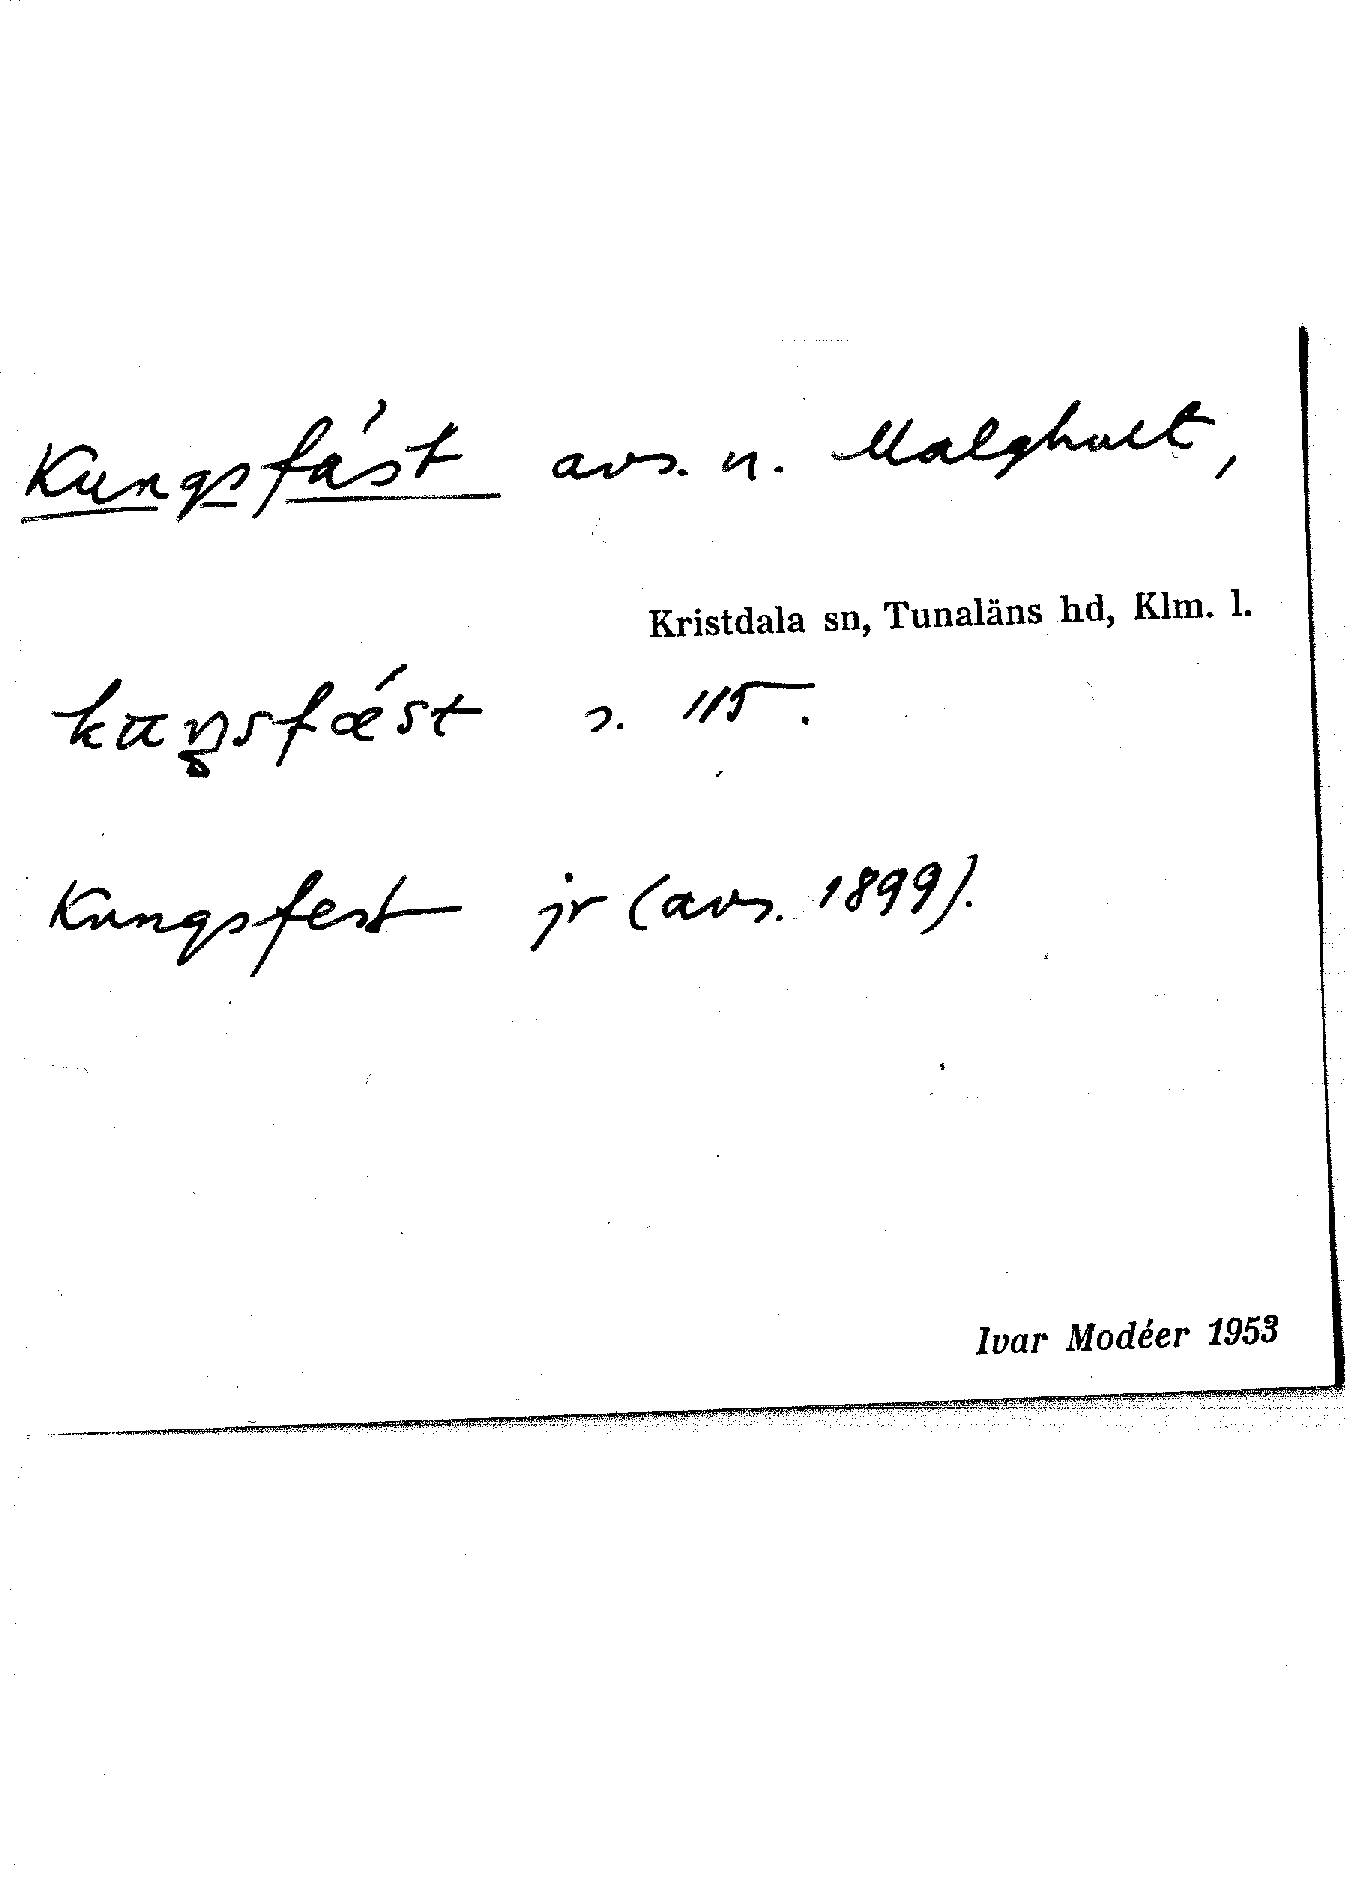 Kungsfást avs. n. Malghult,
Kristdala sn, Tunaläns hd, Klm. l.
kuŋsfǽst s. 115.
Kungsfest jr (avs. 1899).
Ivar Modéer 1953